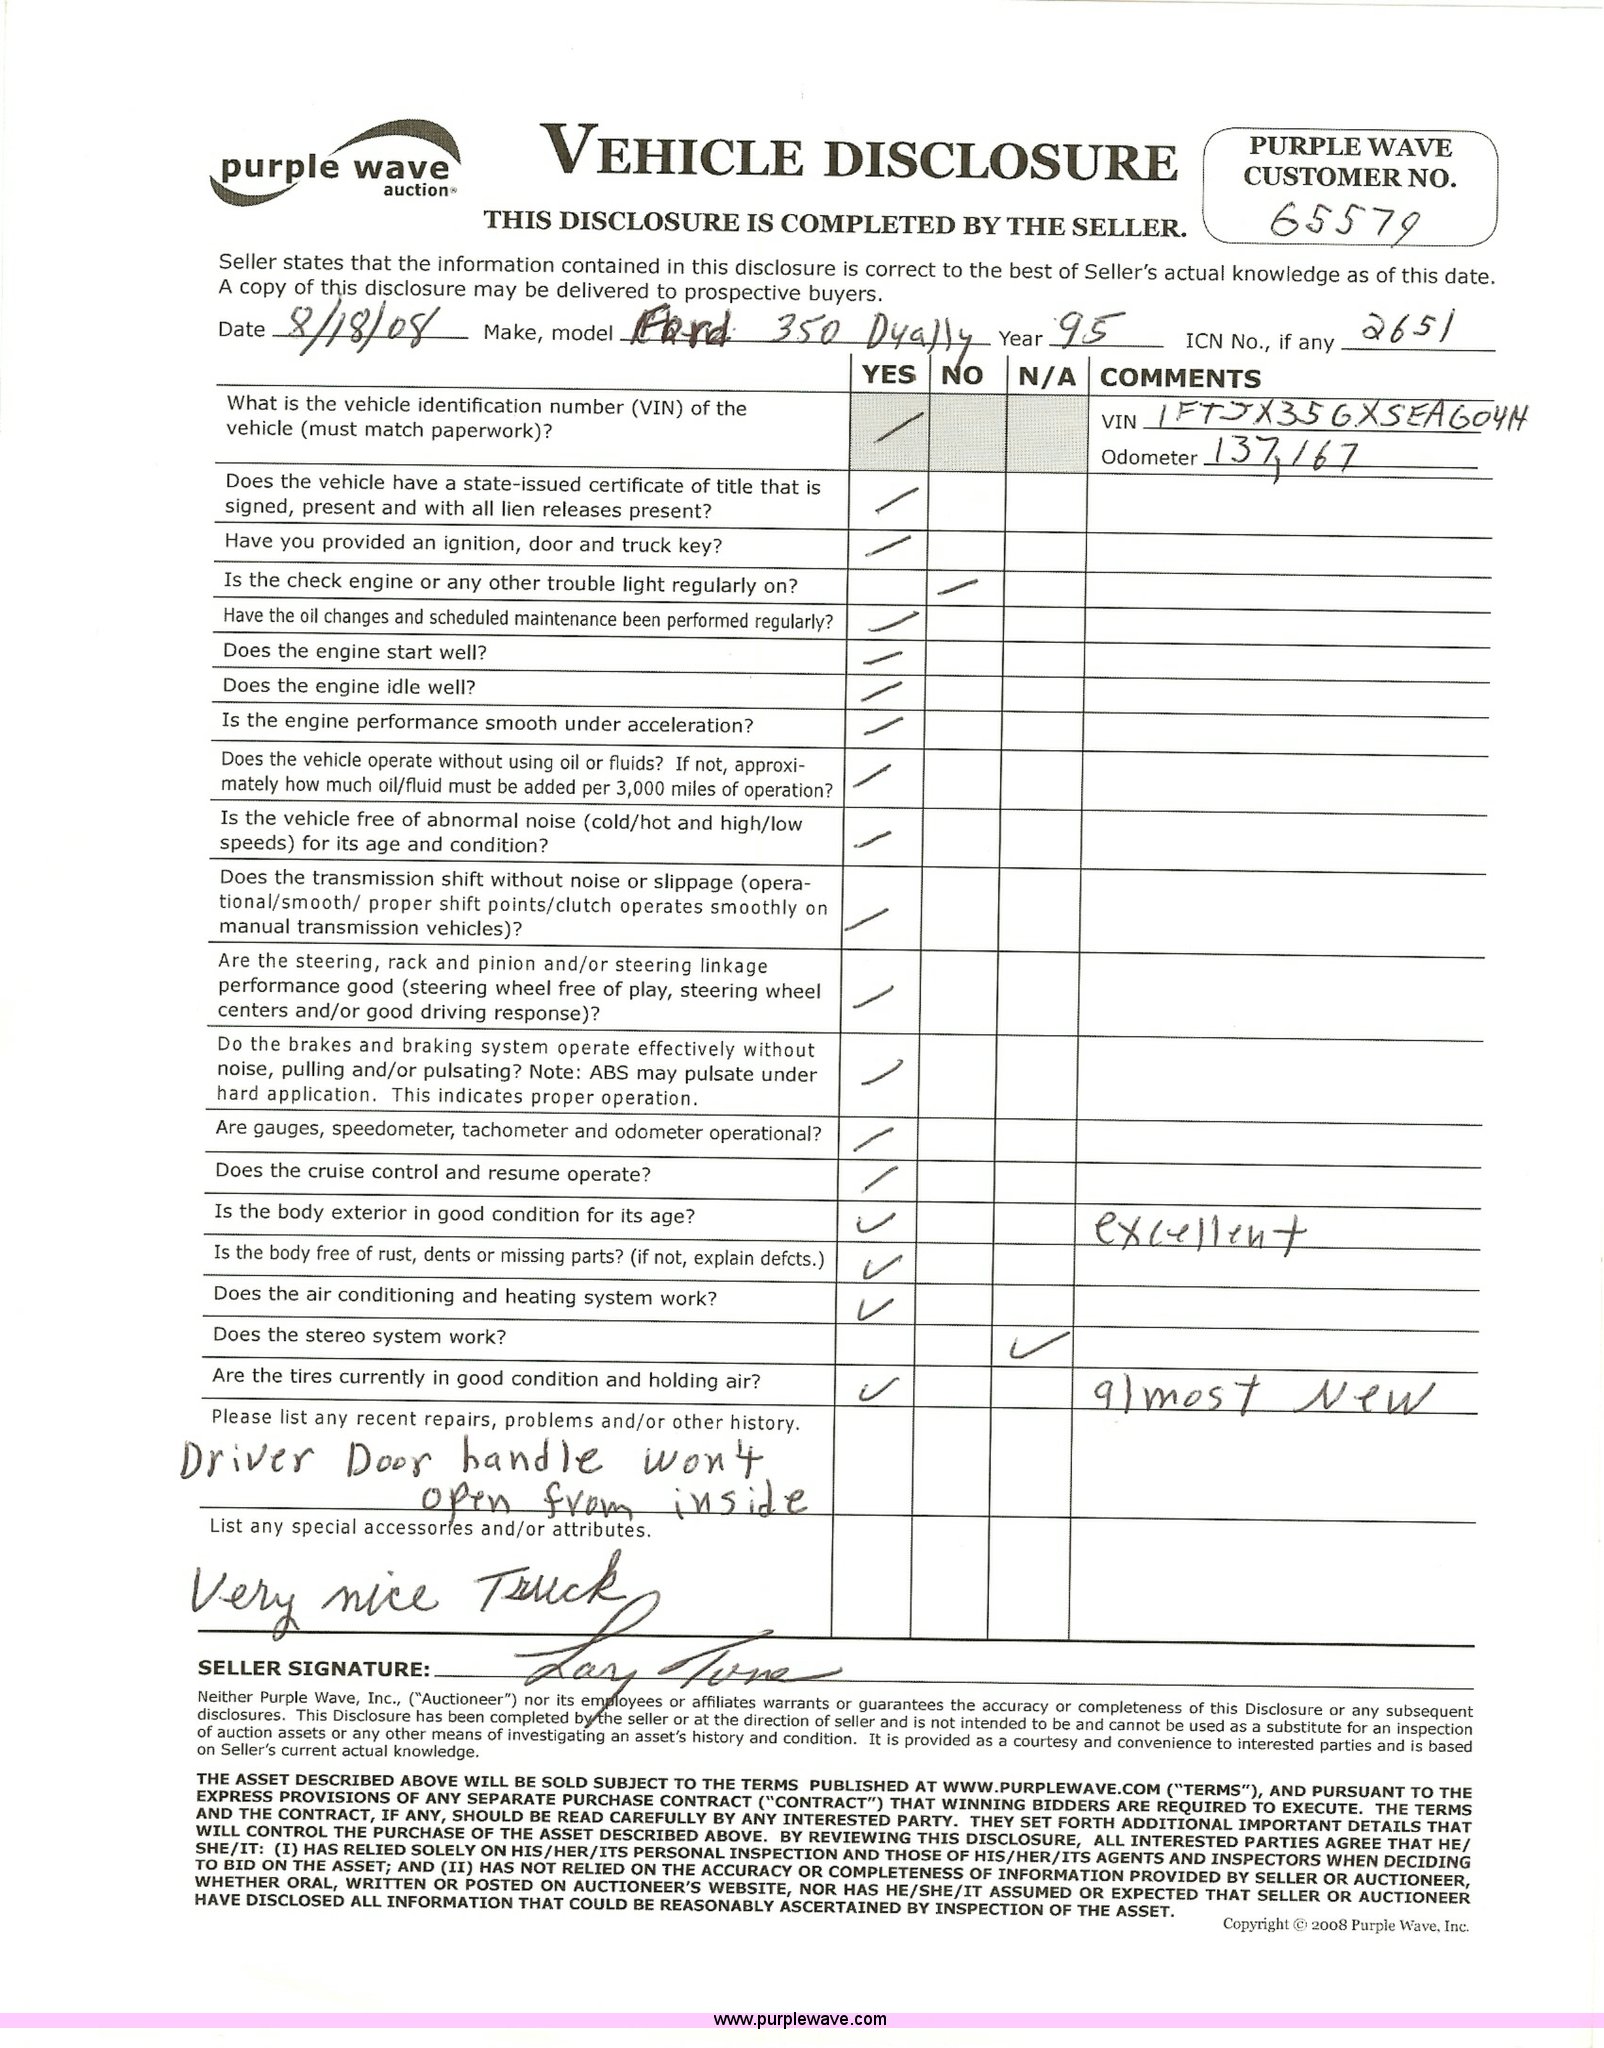 purple wave
auction®
VEHICLE DISCLOSURE
THIS DISCLOSURE IS COMPLETED BY THE SELLER.
PURPLE WAVE
CUSTOMER NO.
65579
Seller states that the information contained in this disclosure is correct to the best of Seller's actual knowledge as of this date.
A copy of this disclosure may be delivered to prospective buyers.
Date 8/18/08 Make, model Ford 350 Dually Year 95 ICN No., if any 2651
YES NO N/A COMMENTS
What is the vehicle identification number (VIN) of the
vehicle (must match paperwork)?
VIN 1FTJX35GXSEA604H
Odometer 137,167
Does the vehicle have a state-issued certificate of title that is
signed, present and with all lien releases present?
Have you provided an ignition, door and truck key?
Is the check engine or any other trouble light regularly on?
Have the oil changes and scheduled maintenance been performed regularly?
Does the engine start well?
Does the engine idle well?
Is the engine performance smooth under acceleration?
Does the vehicle operate without using oil or fluids? If not, approxi-
mately how much oil/fluid must be added per 3,000 miles of operation?
Is the vehicle free of abnormal noise (cold/hot and high/low
speeds) for its age and condition?
Does the transmission shift without noise or slippage (opera-
tional/smooth/ proper shift points/clutch operates smoothly on
manual transmission vehicles)?
Are the steering, rack and pinion and/or steering linkage
performance good (steering wheel free of play, steering wheel
centers and/or good driving response)?
Do the brakes and braking system operate effectively without
noise, pulling and/or pulsating? Note: ABS may pulsate under
hard application. This indicates proper operation.
Are gauges, speedometer, tachometer and odometer operational?
Does the cruise control and resume operate?
Is the body exterior in good condition for its age? excellent
Is the body free of rust, dents or missing parts? (if not, explain defcts.)
Does the air conditioning and heating system work?
Does the stereo system work?
Are the tires currently in good condition and holding air? almost New
Please list any recent repairs, problems and/or other history.
Driver Door handle wont
open from inside
List any special accessories and/or attributes.
Very nice Truck
SELLER SIGNATURE:
Neither Purple Wave, Inc., ("Auctioneer") nor its employees or affiliates warrants or guarantees the accuracy or completeness of this Disclosure or any subsequent
disclosures. This Disclosure has been completed by the seller or at the direction of seller and is not intended to be and cannot be used as a substitute for an inspection
of auction assets or any other means of investigating an asset's history and condition. It is provided as a courtesy and convenience to interested parties and is based
on Seller's current actual knowledge.
THE ASSET DESCRIBED ABOVE WILL BE SOLD SUBJECT TO THE TERMS PUBLISHED AT WWW.PURPLEWAVE.COM ("TERMS"), AND PURSUANT TO THE
EXPRESS PROVISIONS OF ANY SEPARATE PURCHASE CONTRACT ("CONTRACT") THAT WINNING BIDDERS ARE REQUIRED TO EXECUTE. THE TERMS
AND THE CONTRACT, IF ANY, SHOULD BE READ CAREFULLY BY ANY INTERESTED PARTY. THEY SET FORTH ADDITIONAL IMPORTANT DETAILS THAT
WILL CONTROL THE PURCHASE OF THE ASSET DESCRIBED ABOVE. BY REVIEWING THIS DISCLOSURE, ALL INTERESTED PARTIES AGREE THAT HE/
SHE/IT: (I) HAS RELIED SOLELY ON HIS/HER/ITS PERSONAL INSPECTION AND THOSE OF HIS/HER/ITS AGENTS AND INSPECTORS WHEN DECIDING
TO BID ON THE ASSET; AND (II) HAS NOT RELIED ON THE ACCURACY OR COMPLETENESS OF INFORMATION PROVIDED BY SELLER OR AUCTIONEER,
WHETHER ORAL, WRITTEN OR POSTED ON AUCTIONEER'S WEBSITE, NOR HAS HE/SHE/IT ASSUMED OR EXPECTED THAT SELLER OR AUCTIONEER
HAVE DISCLOSED ALL INFORMATION THAT COULD BE REASONABLY ASCERTAINED BY INSPECTION OF THE ASSET.
Copyright © 2008 Purple Wave, Inc.
www.purplewave.com